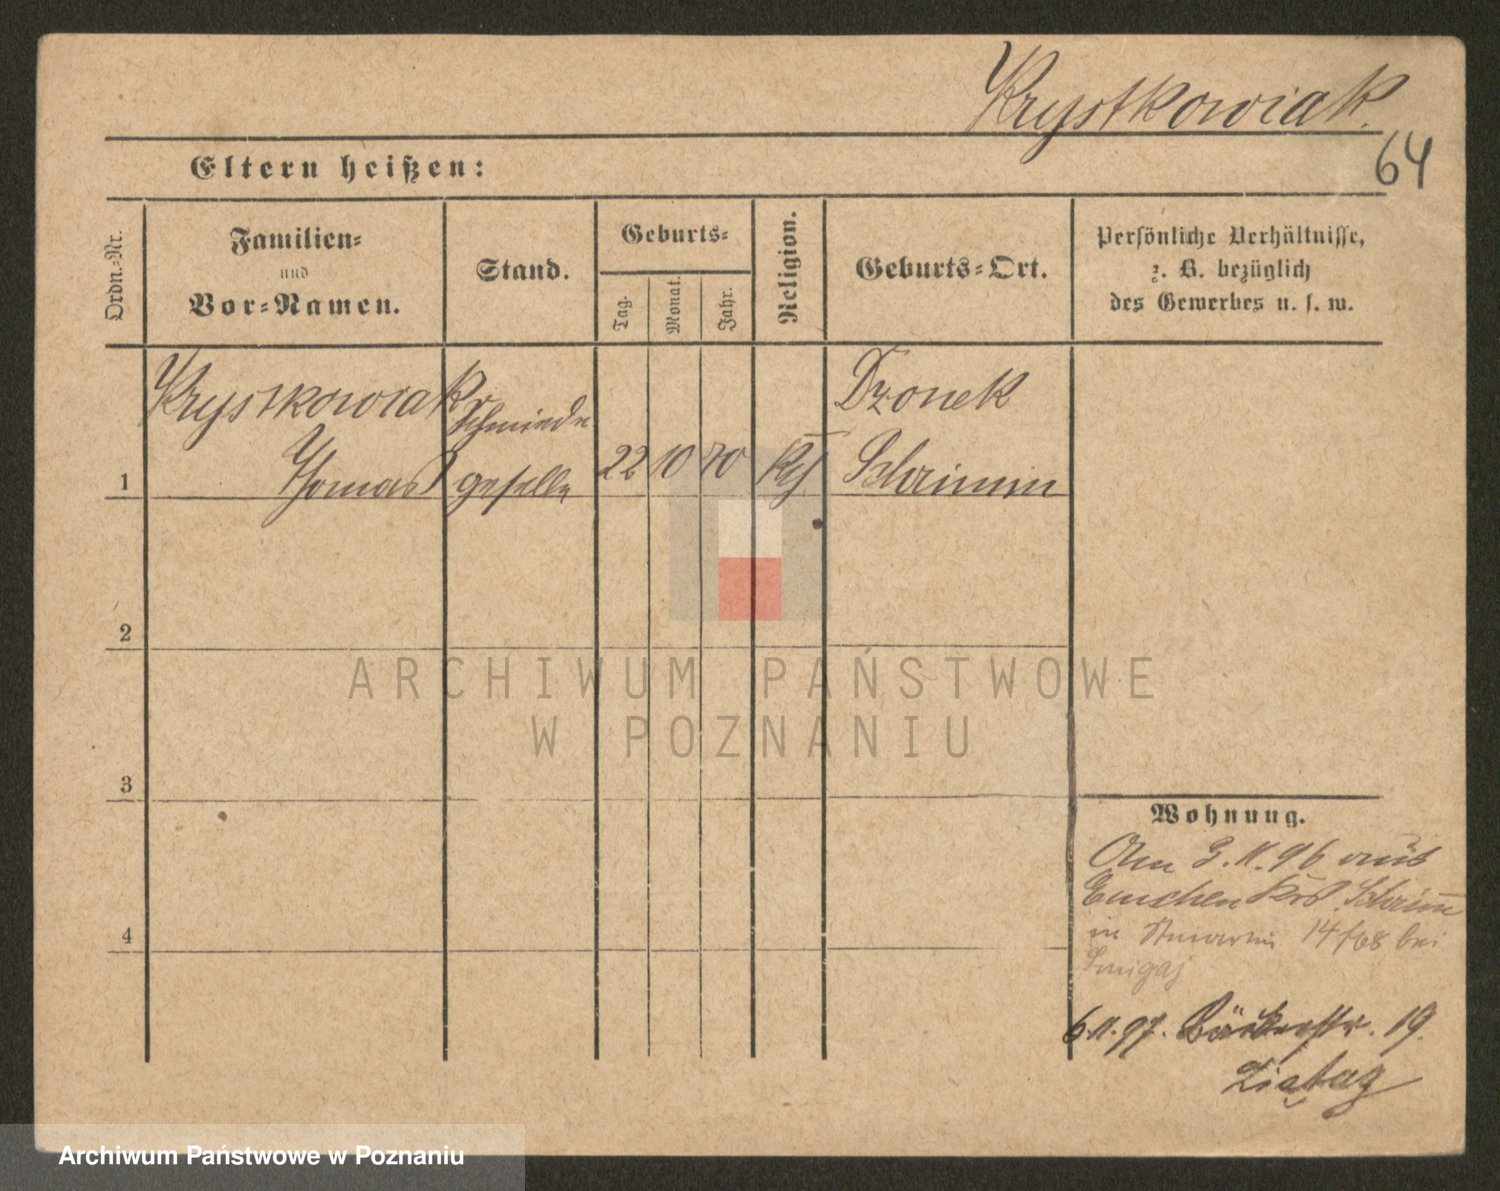 Krystkowiak.
64
Eltern heißen:
Ordn.-Nr.
Familien-
und
Vor-Namen.
Stand.
Geburts-
Tag.
Monat.
Jahr.
Religion.
Geburts-Ort.
Persönliche Verhältnisse,
z. B. bezüglich
des Gewerbes u. s. w.
Krystkowiak
Schmiede
Dzonek
1 Thomas geselle 22 10 70 Schrimm
2
ARCHIWUM PAŃSTWOWE
W POZNANIU
3
Wohnung.
Am 3.11.96 aus
Emchen Krs. Schrimm
4
in St martin 14/68 bei
Smigaj
6.11.97. Bäckerstr. 19.
Archiwum Państwowe w Poznaniu